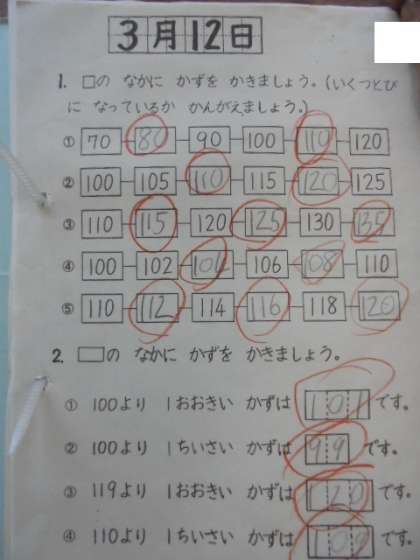 3月12日
1. □の なかに かずを かきましょう。(いくつとび
に なっているか かんがえましょう。)
① 70 80 90 100 110 120
② 100 105 110 115 120 125
③ 110 115 120 125 130 135
④ 100 102 104 106 108 110
⑤ 110 112 114 116 118 120
2. □の なかに かずを かきましょう。
① 100より 1おおきい かずは 101 です。
② 100より 1ちいさい かずは 99 です。
③ 119より 1おおきい かずは 120 です。
④ 110より 1ちいさい かずは 109 です。